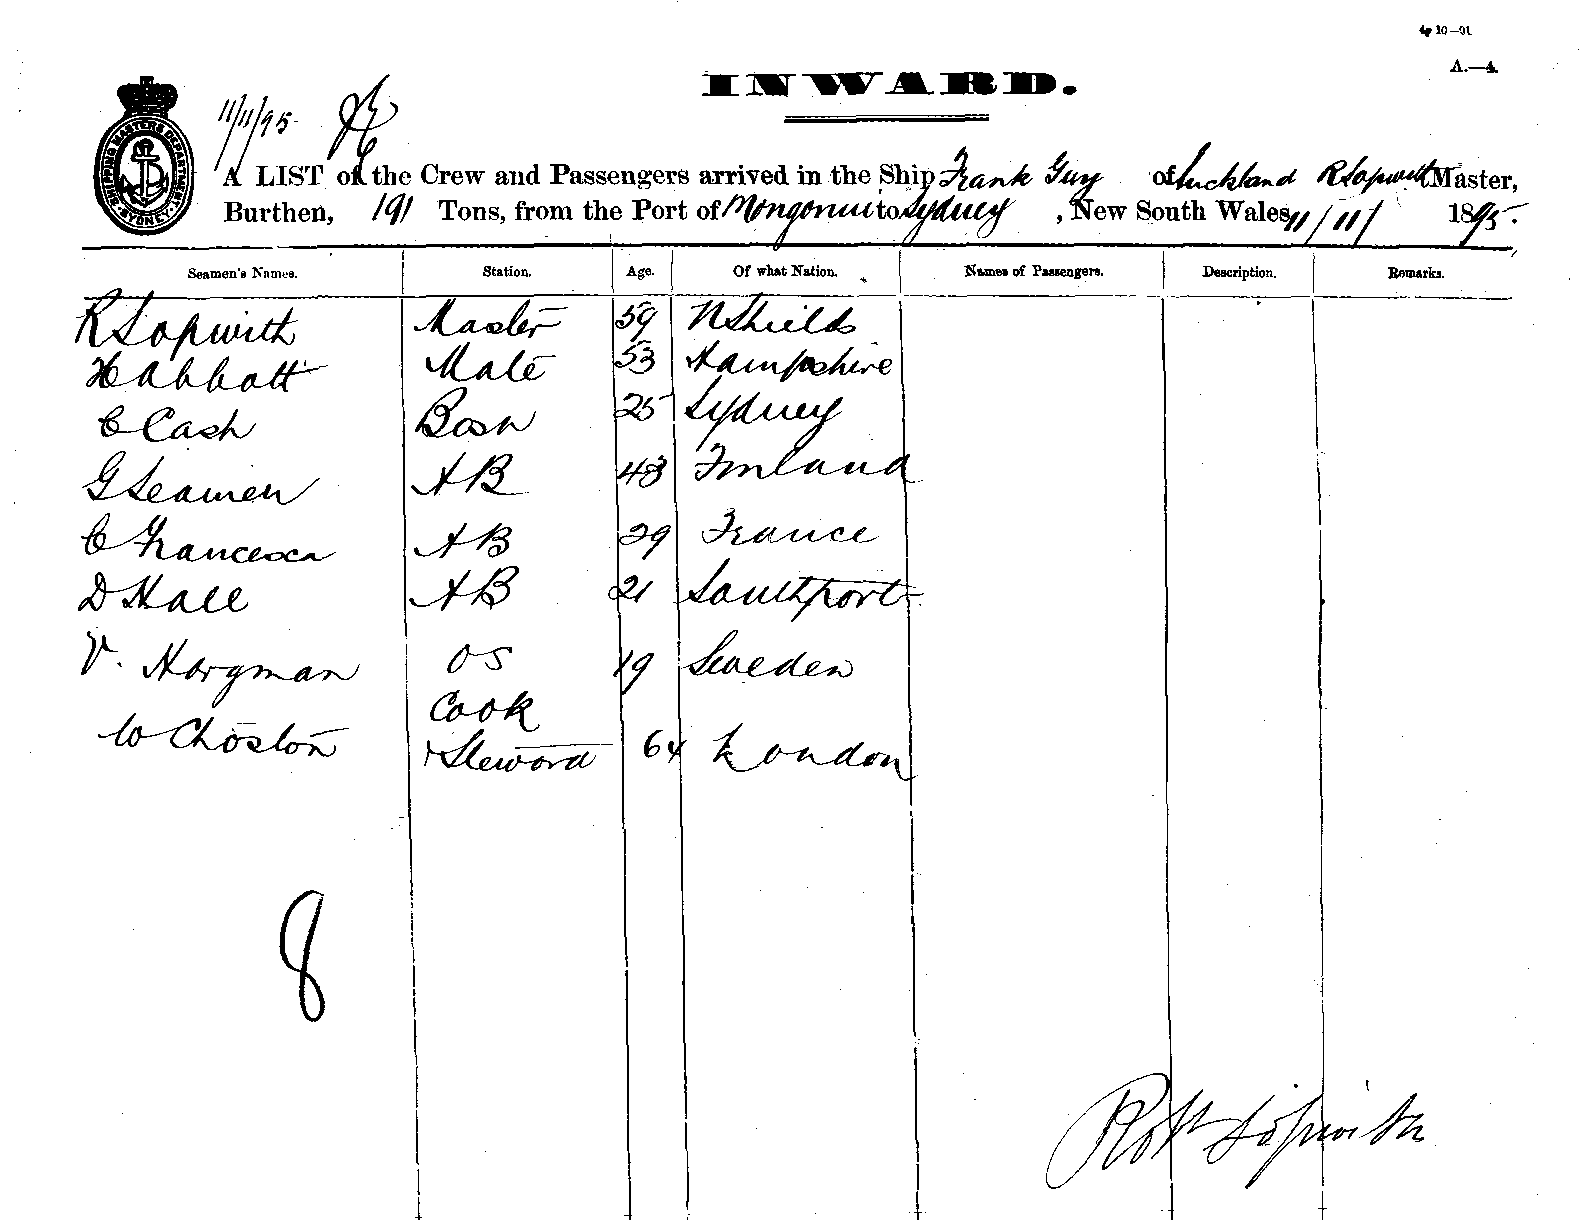 4p 10—91
A.—4.
INWARD.
SHIPPING MASTERS DEPARTMENT SYDNEY
11/11/95
A LIST of the Crew and Passengers arrived in the Ship Frank Guy of Auckland R Sopwith Master,
Burthen, 191 Tons, from the Port of Mongonui to Sydney, New South Wales, 11/11/ 1895.
Seamen's Names. Station. Age. Of what Nation. Names of Passengers. Description. Remarks.
R Sopwith Master 59 N Shields
H Abbott Mate 53 Hampshire
C Cash Bosn 25 Sydney
G Seamen AB 43 Finland
C Francesca AB 29 France
D Hall AB 21 Southport
V. Horgman OS 19 Sweden
W Choston Cook + Steward 64 London
8
Robt Sopwith